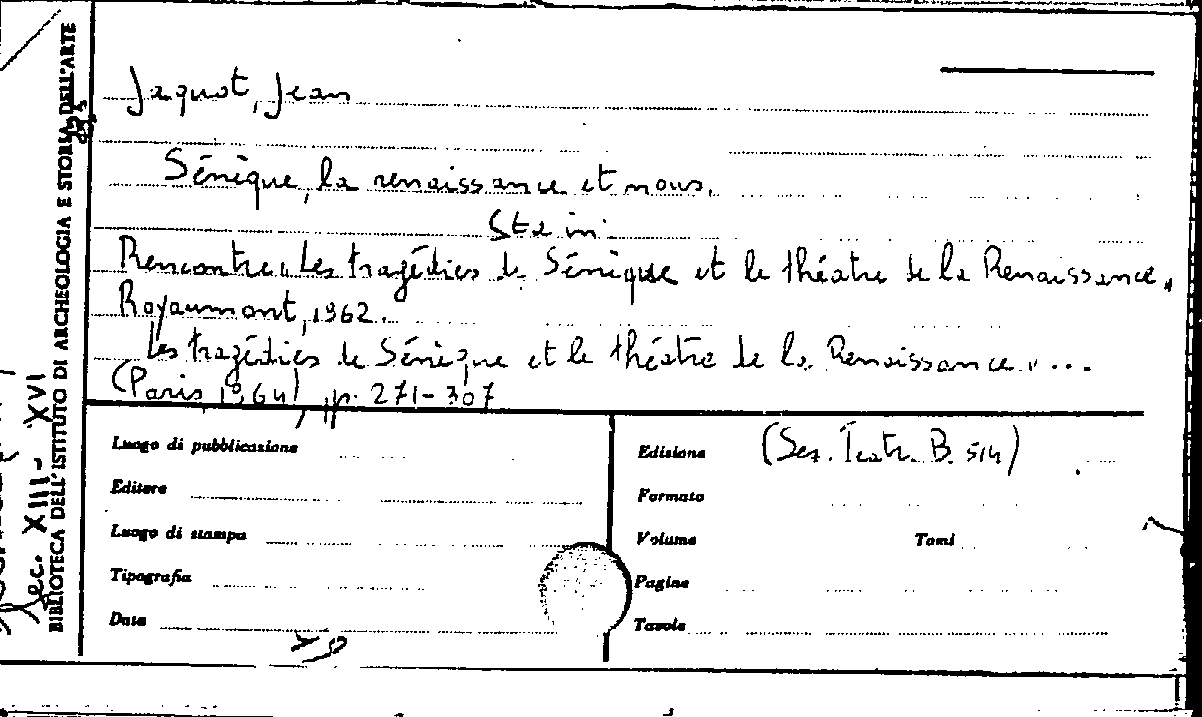 Jaquot, Jean
Sénèque, la renaissance et nous.
Sta in:
Rencontre "Les tragédies de Sénèque et le théatre de la Renaissance"
Royaumont, 1962.
Les tragédies de Sénèque et le théatre de la Renaissance" ...
(Paris, 1964), pp. 271-307
Luogo di pubblicazione
Editore
Luogo di stampa
Tipografia
Data
Edizione (Sez. Teatr. B. 514)
Formato
Volume Tomi
Pagine
Tavole
BIBLIOTECA DELL'ISTITUTO DI ARCHEOLOGIA E STORIA DELL'ARTE
Sec. XIII-XVI